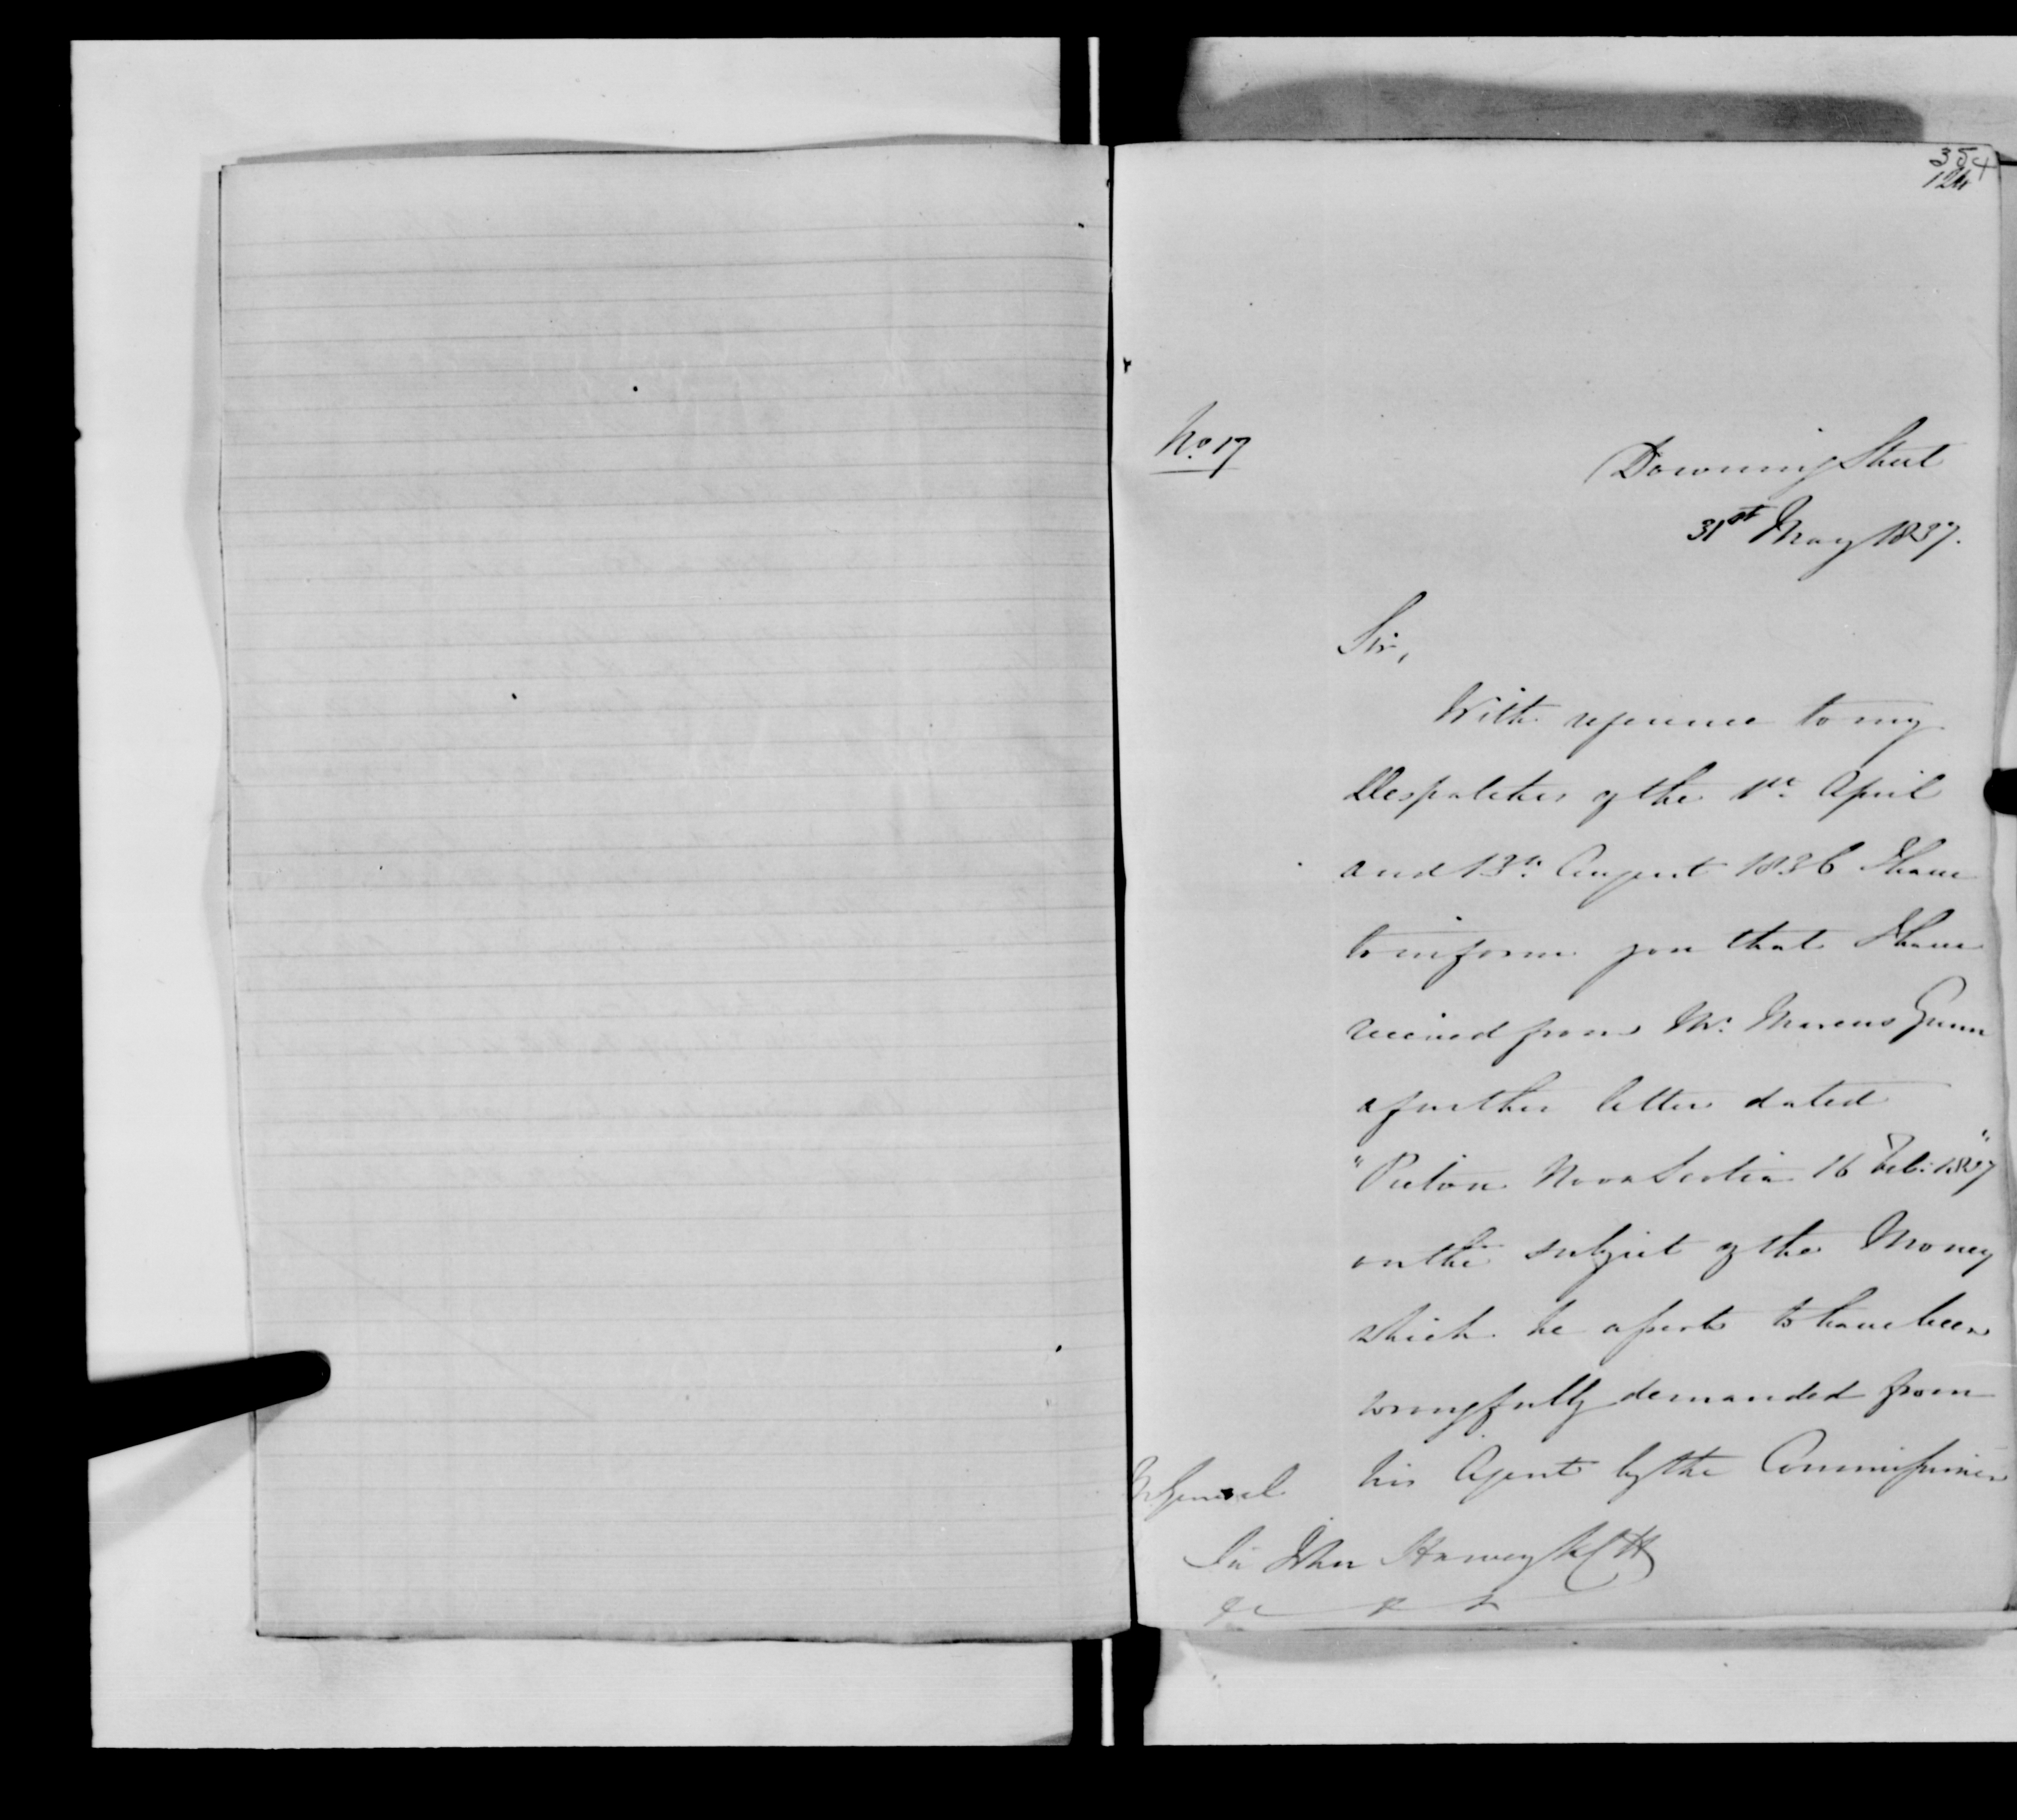 354
124
No. 17
Downing Street
31st May 1837.
Sir,
With reference to my
Despatches of the 1st April
and 13th August 1836 I have
to inform you that I have
received from Mr. Marcus Gunn
a further letter dated
"Pictou Nova Scotia 16 Feb: 1837"
on the subject of the Money
which he asserts to have been
wrongfully demanded from
his Agent by the Commissioner
M General
Sir John Harvey KCH
&c & &